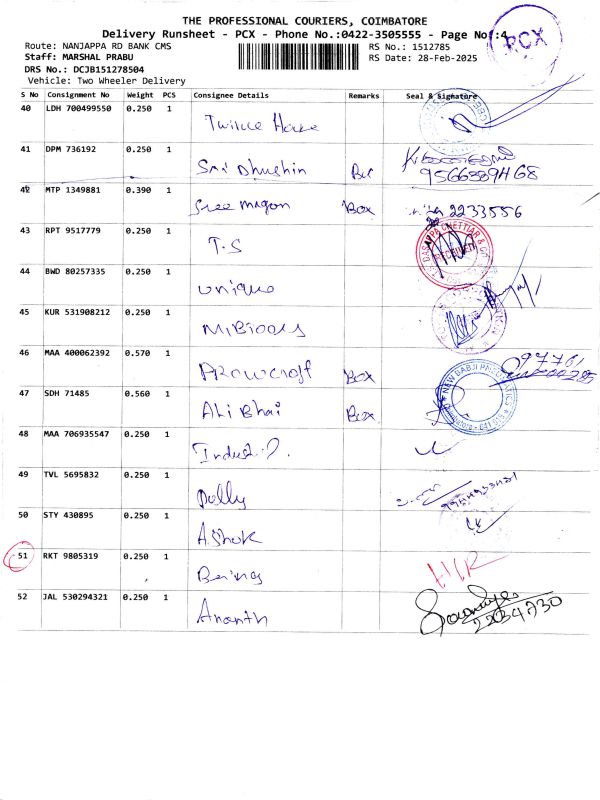 THE PROFESSIONAL COURIERS, COIMBATORE
Delivery Runsheet - PCX - Phone No.:0422-3505555 - Page No.:4
PCX
Route: NANJAPPA RD BANK CMS
RS No.: 1512785
Staff: MARSHAL PRABU
RS Date: 28-Feb-2025
DRS No.: DCJB151278504
Vehicle: Two Wheeler Delivery
S No Consignment No Weight PCS Consignee Details Remarks Seal & Signature
40 LDH 700499550 0.250 1
41 DPM 736192 0.250 1 Sri Dhushin
9566889468
42 MTP 1349881 0.390 1 Sree Magon Box 2233556
43 RPT 9517779 0.250 1 T.S
DASAPPA CHETTIAR & CO
RECEIVED
44 BWD 80257335 0.250 1 Unique
45 KUR 531908212 0.250 1
46 MAA 400062392 0.570 1 Arowcroft Box
97761
47 SDH 71485 0.560 1 Ali Bhai Box
NEW BABJI PNEUMATICS
48 MAA 706935547 0.250 1
49 TVL 5695832 0.250 1 Dolly
50 STY 430895 0.250 1 Ashok
51 RKT 9805319 0.250 1
52 JAL 530294321 0.250 1 Ananth
2234730